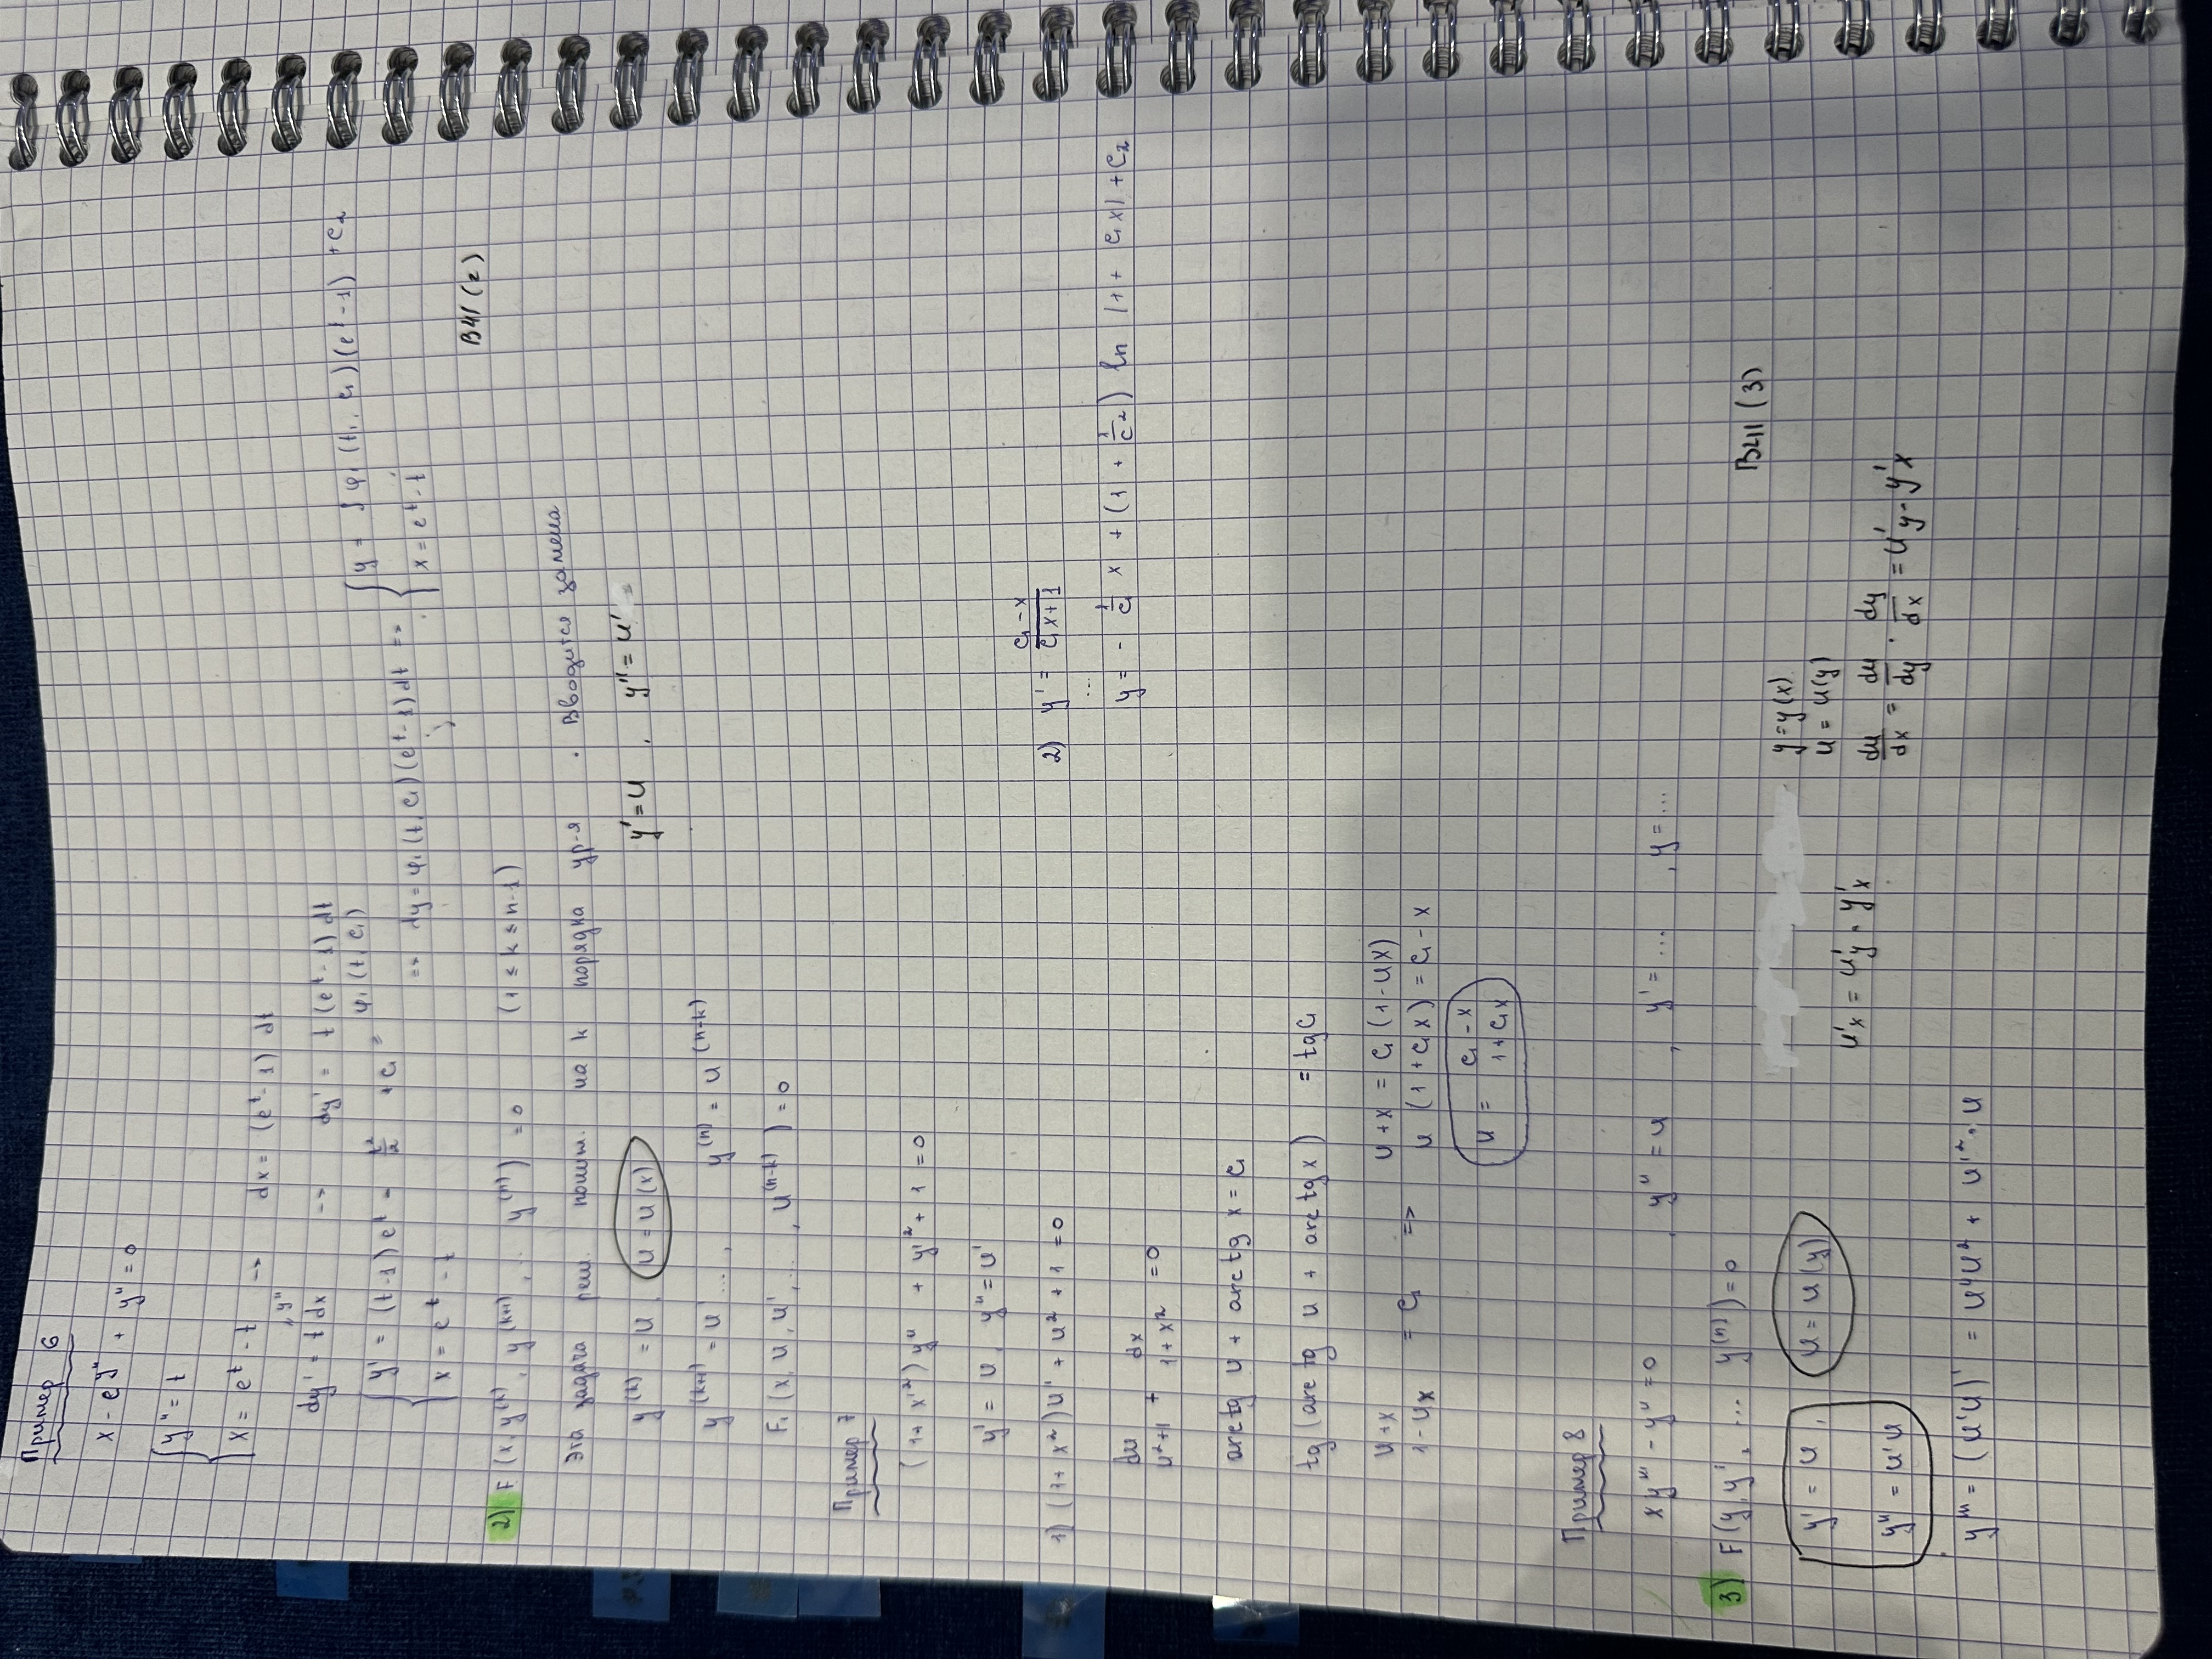 Пример 6
x - e^{y''} + y'' = 0
{ y'' = t
x = e^t - t → dx = (e^t - 1) dt
" y''
dy' = t dx → dy' = t (e^t - 1) dt
{ y' = (t-1) e^t - t²/2 + c₁ = φ₁ (t, c₁)
x = e^t - t
=> dy = φ₁ (t, c₁) (e^t - 1) dt =>
{ y = ∫ φ₁ (t, c₁) (e^t - 1) + c₂
x = e^t - t
ВЧ1 (2)
2) F (x, y^{(k)}, y^{(k+1)}, ... y^{(n)}) = 0 (1 ≤ k ≤ n-1)
Эта задача реш. пониж. на k порядка ур-я . Вводится замена
y^{(k)} = u, u = u (x) y' = u , y'' = u' =
y^{(k+1)} = u' ..., y^{(n)} = u^{(n-k)}
F₁ (x, u, u', ..., u^{(n-k)}) = 0
Пример 7
(1 + x'^2) y'' + y'^2 + 1 = 0
y' = u, y'' = u'
1) (1 + x²) u' + u² + 1 = 0
du/(u²+1) + dx/(1+x²) = 0
arctg u + arctg x = c₁
tg (arctg u + arctg x) = tg c₁
(u+x)/(1-ux) = c₁ => u + x = c₁ (1 - ux)
u (1 + c₁x) = c₁ - x
u = (c₁ - x)/(1 + c₁x)
2) y' = (c₁ - x)/(c₁x + 1)
...
y = - 1/c₁ x + (1 + 1/c²) ln |1 + c₁x| + c₂
Пример 8
xy''' - y'' = 0 , y'' = u , y' = ... , y = ...
3) F (y, y', ... y^{(n)}) = 0
ВЧ1 (3)
y' = u, u = u (y)
y'' = u'u
u'x = u'y · y'x
y = y (x)
u = u(y)
du/dx = du/dy · dy/dx = u'y - y'x
y''' = (u'u)' = u''u² + u'^2 · u